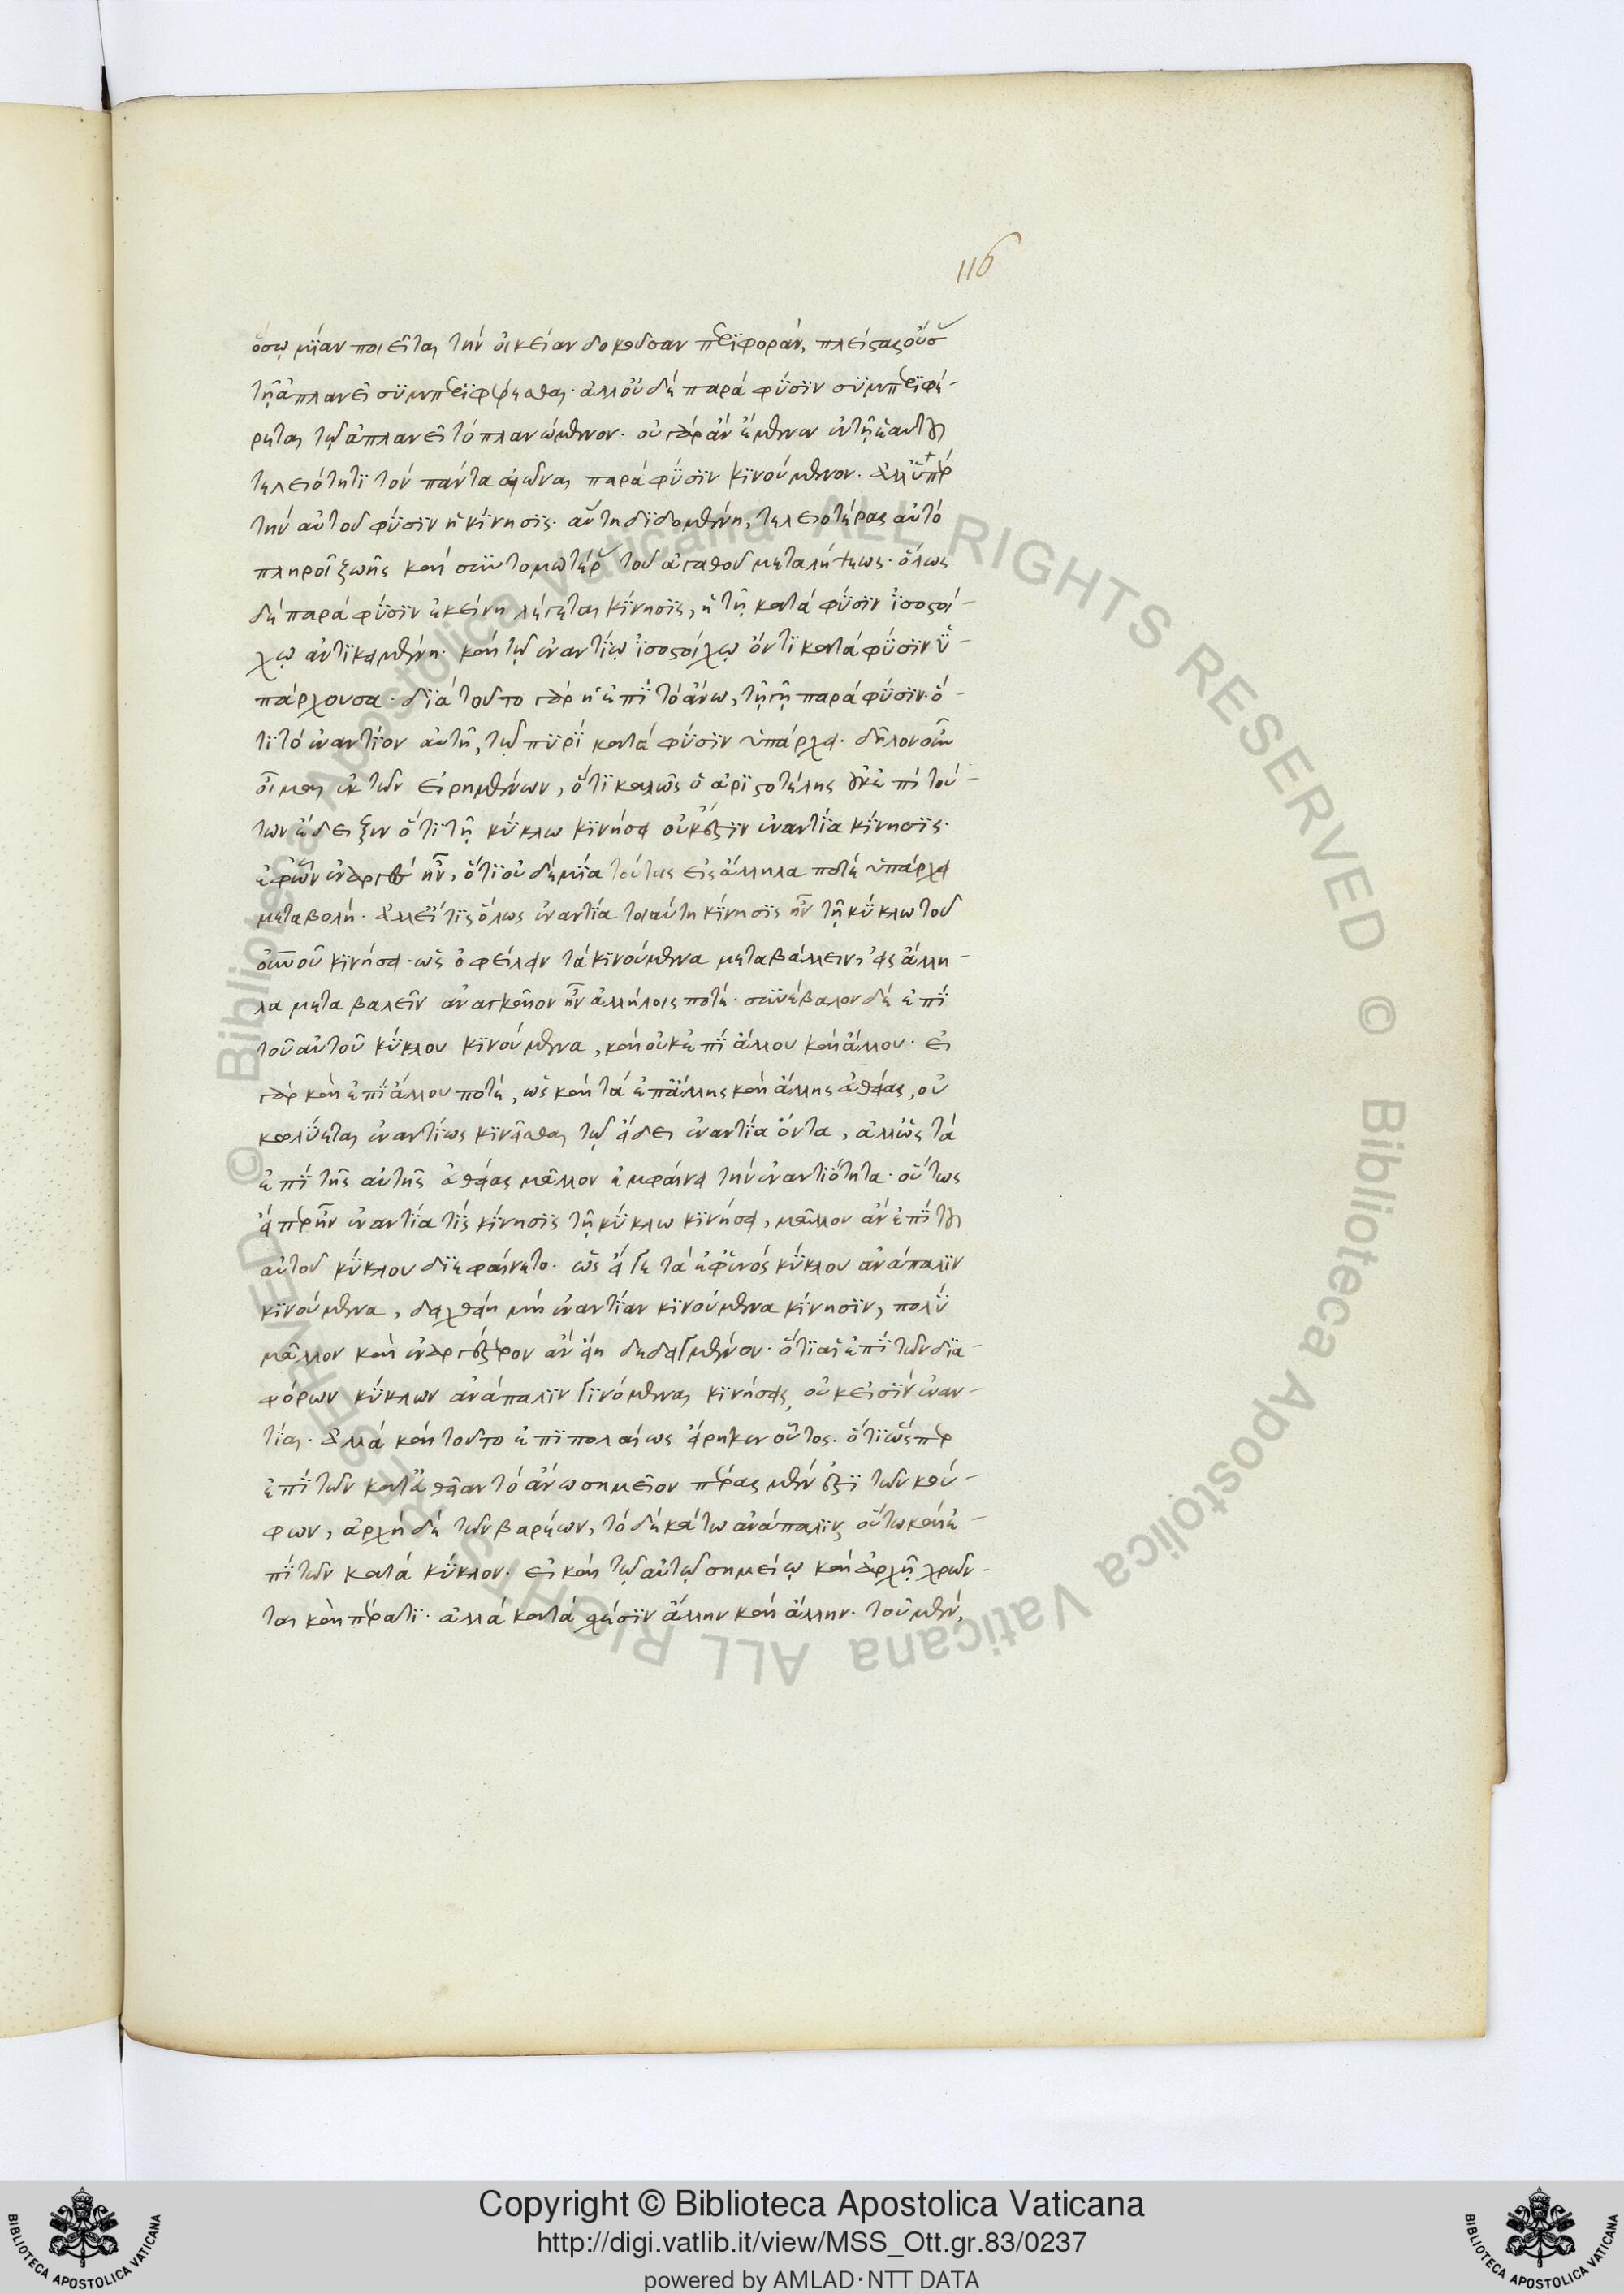 116
ὅσῳ μίαν ποιεῖται τὴν οἰκείαν δοκοῦσαν περιφοράν, πλείστας οὔσας
τῇ ἀπλανεῖ συμπεριφέρεσθαι. ἀλλ' οὐδὲ παρὰ φύσιν συμπεριφέ-
ρεται τῷ ἀπλανεῖ τὸ πλανώμενον. οὐ γὰρ ἂν ἔμενεν ἐν τῇ ἑαυτοῦ
τελειότητι τὸν πάντα αἰῶνα παρὰ φύσιν κινούμενον. ἀλλ' ὑπὲρ
τὴν αὐτοῦ φύσιν ἡ κίνησις. αὕτη διδομένη, τελειοτέρας αὐτὸ
πληροῖ ζωῆς καὶ συντομωτέρας τοῦ ἀγαθοῦ μεταλήψεως. ὅλως
δὲ παρὰ φύσιν ἐκείνη λέγεται κίνησις, ἡ τῇ κατὰ φύσιν ἰσοστοί-
χῳ ἀντικειμένη. καὶ τῷ ἐναντίῳ ἰσοστοίχῳ ὄντι κατὰ φύσιν ὑ-
πάρχουσα. διὰ τοῦτο γὰρ ἡ ἐπὶ τὸ ἄνω, τῇ γῇ παρὰ φύσιν. ὅ-
τι τὸ ἐναντίον αὐτῇ, τῷ πυρὶ κατὰ φύσιν ὑπάρχει. δῆλον οὖν
οἶμαι ἐκ τῶν εἰρημένων, ὅτι καλῶς ὁ ἀριστοτέλης οὐκ ἐπὶ τού-
των ἔδειξεν ὅτι τῇ κύκλω κινήσει οὐκ ἔστιν ἐναντία κίνησις.
ἐφ' ὧν ἐναργὲς ἦν, ὅτι οὐδεμία τούτοις εἰς ἄλληλα ποτὲ ὑπάρχει
μεταβολή. ἀλλ' εἴ τις ὅλως ἐναντία τοιαύτη κίνησις ἦν τῇ κύκλω τοῦ
οὐνοῦ κινήσει. ὡς ὀφείλειν τὰ κινούμενα μεταβάλλειν, εἰς ἄλλη-
λα μεταβαλεῖν ἀναγκαῖον ἦν ἀλλήλοις ποτέ. συνέβαλον δὲ ἐπὶ
τοῦ αὐτοῦ κύκλου κινούμενα, καὶ οὐκ ἐπὶ ἄλλου καὶ ἄλλου. εἰ
γὰρ καὶ ἐπὶ ἄλλου ποτέ, ὡς καὶ τὰ ἐπ' ἄλλης καὶ ἄλλης εὐθείας, οὐ
κωλύεται ἐναντίως κινεῖσθαι τῷ εἴδει ἐναντία ὄντα, ἀλλ' ὡς τὰ
ἐπὶ τῆς αὐτῆς εὐθείας μᾶλλον ἐμφαίνει τὴν ἐναντιότητα. οὕτως
εἴπερ ἦν ἐναντία τὶς κίνησις τῇ κύκλω κινήσει, μᾶλλον ἂν ἐπὶ τοῦ
αὐτοῦ κύκλου διεφαίνετο. ὡς εἴγε τὰ ἐφ' ἑνὸς κύκλου ἀνάπαλιν
κινούμενα, δειχθείη μὴ ἐναντίαν κινούμενα κίνησιν, πολὺ
μᾶλλον καὶ ἐναργέστερον ἂν εἴη δεδειγμένον. ὅτι αἱ ἐπὶ τῶν δια-
φόρων κύκλων ἀνάπαλιν γινόμεναι κινήσεις, οὐκ εἰσὶν ἐναν-
τίαι. ἀλλὰ καὶ τοῦτο ἐπιπολαίως εἴρηκεν οὗτος. ὅτι ὥσπερ
ἐπὶ τῶν κατ' εὐθεῖαν τὸ ἄνω σημεῖον πέρας μέν ἐστι τῶν κού-
φων, ἀρχὴ δὲ τῶν βαρέων, τὸ δὲ κάτω ἀνάπαλιν, οὕτω καὶ ἐ-
πὶ τῶν κατὰ κύκλον. εἰ καὶ τῷ αὐτῷ σημείῳ καὶ ἀρχῇ χρῶν-
ται καὶ πέρατι. ἀλλὰ κατὰ σχέσιν ἄλλην καὶ ἄλλην. τοῦ μὲν,
Copyright © Biblioteca Apostolica Vaticana
http://digi.vatlib.it/view/MSS_Ott.gr.83/0237
powered by AMLAD·NTT DATA